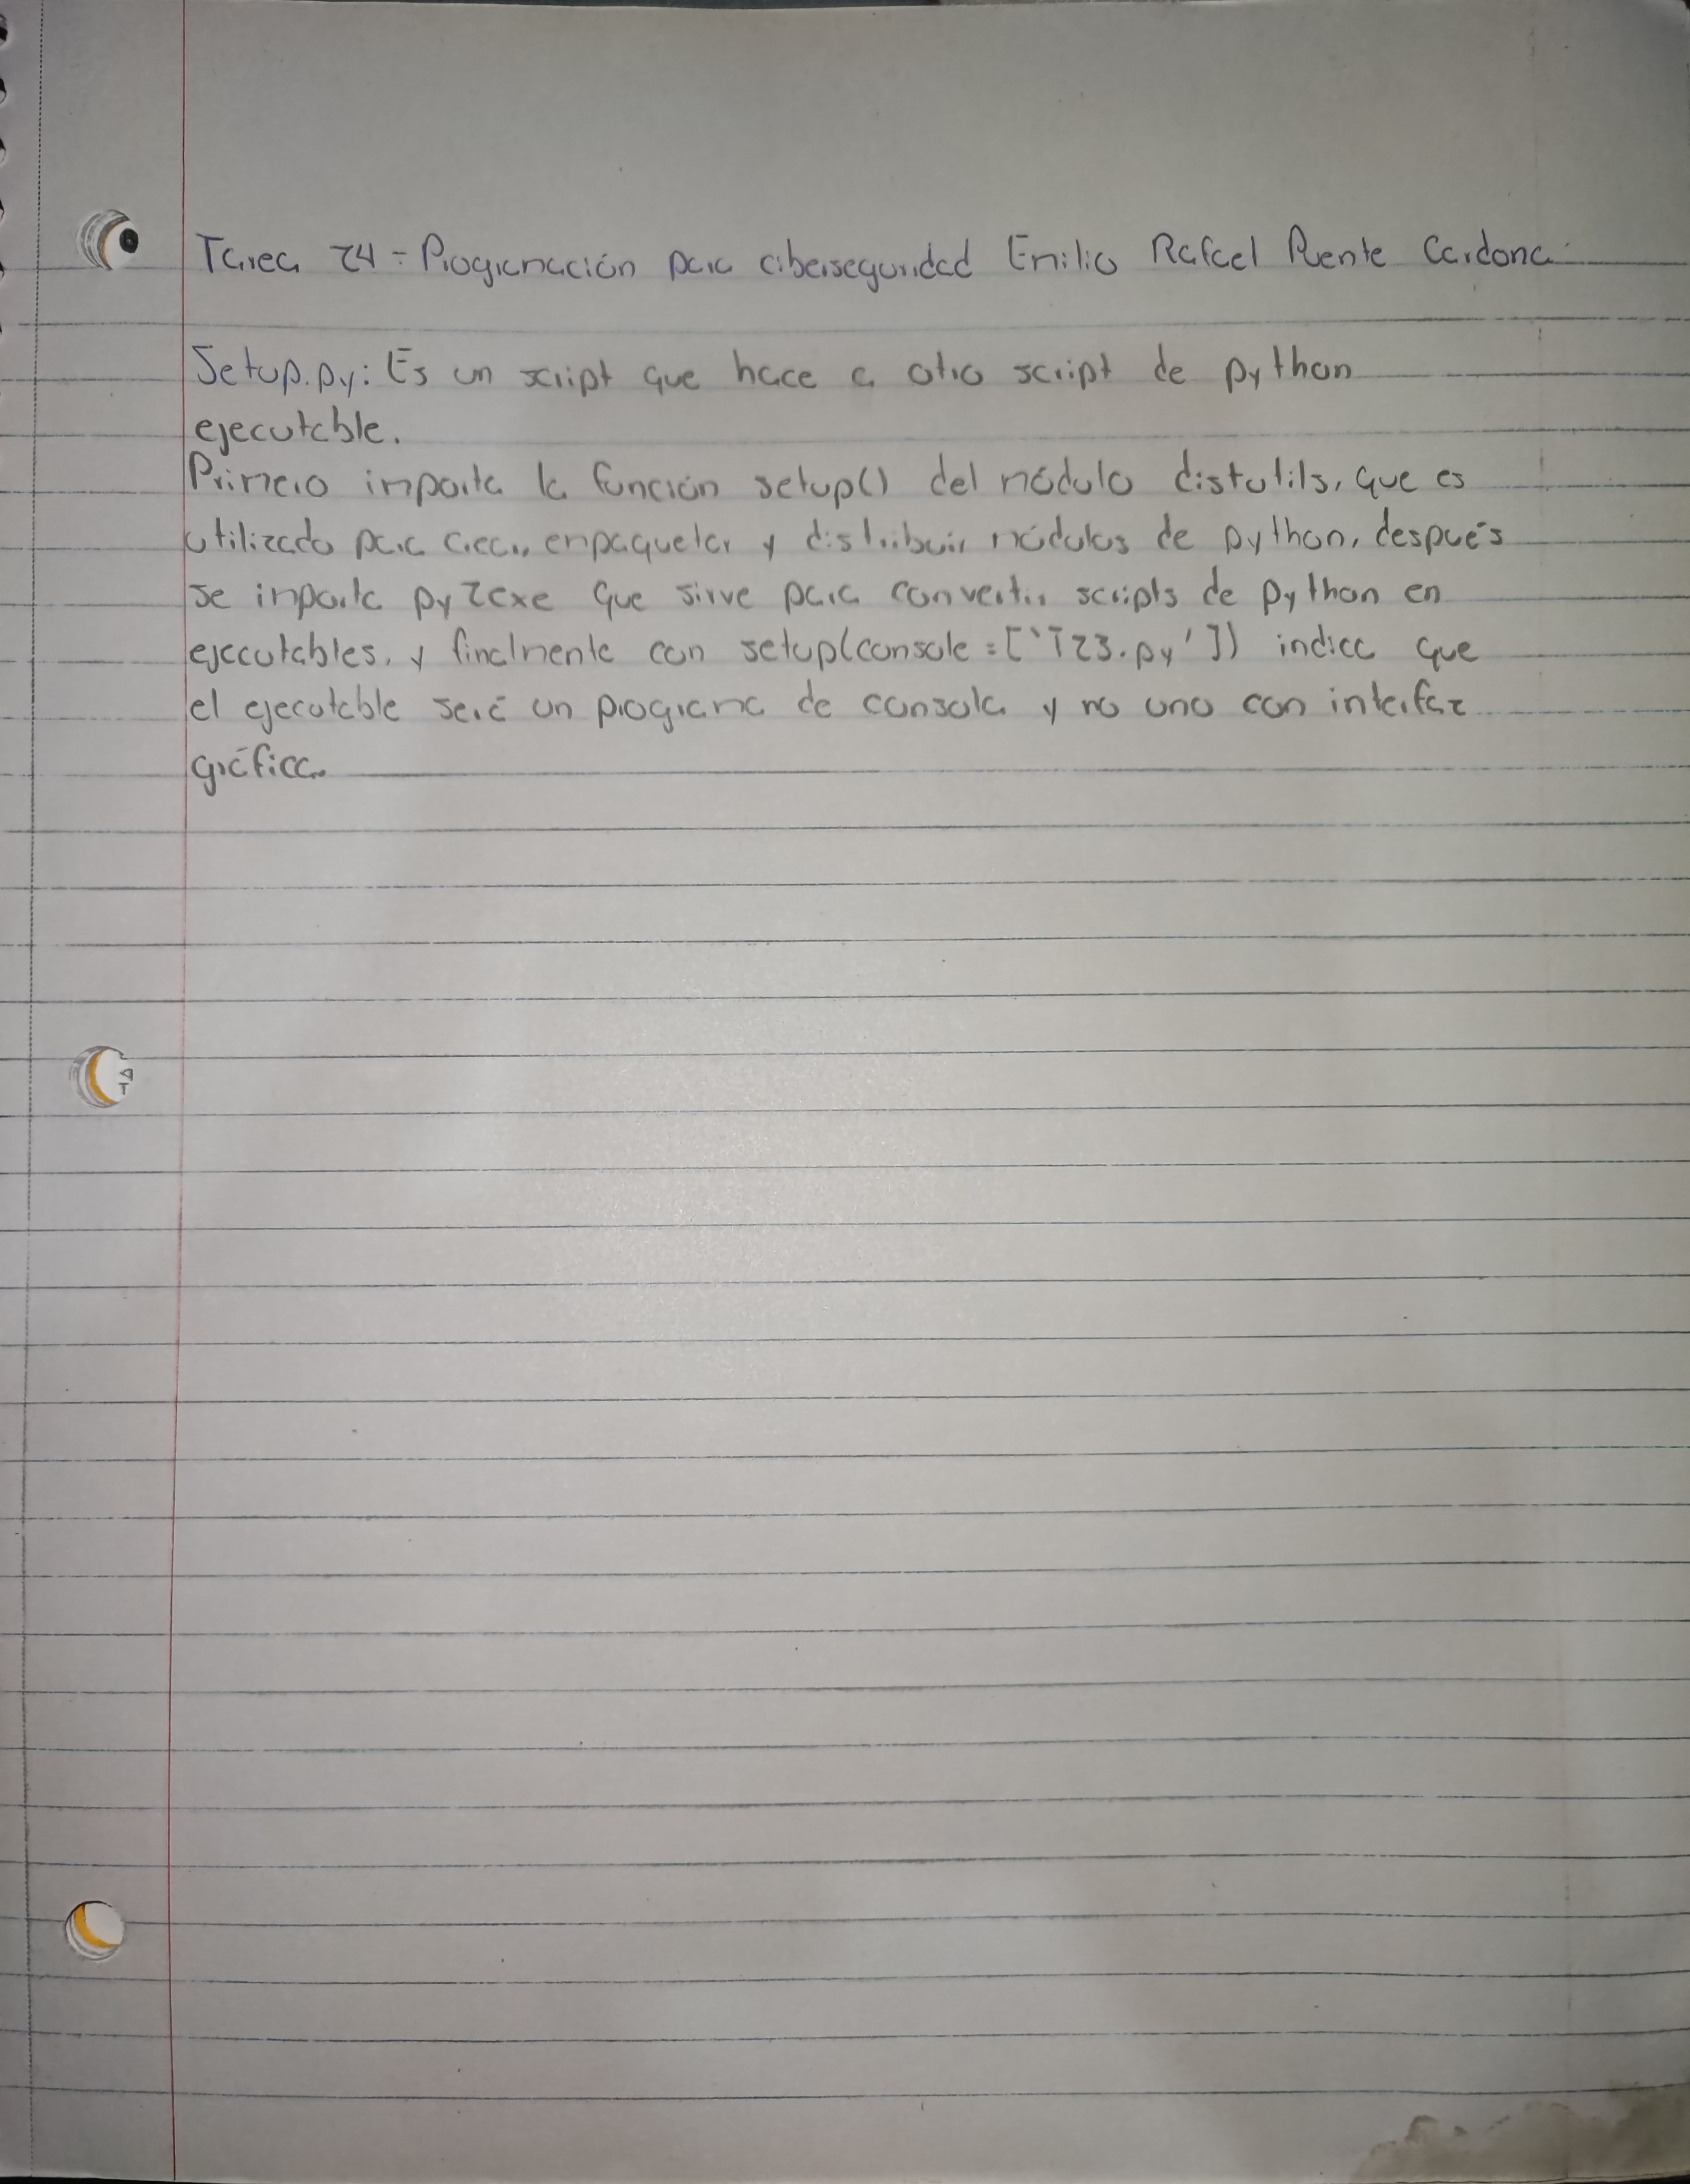 Tarea 24 - Programación para ciberseguridad Emilio Rafael Puente Cardona
Setup.py: Es un script que hace a otro script de python
ejecutable.
Primero importa la función setup() del módulo distutils, que es
utilizado para crear, empaquetar y distribuir módulos de python, después
se importa py2exe que sirve para convertir scripts de python en
ejecutables, y finalmente con setup(console=['T23.py']) indica que
el ejecutable será un programa de consola y no uno con interfaz
gráfica.